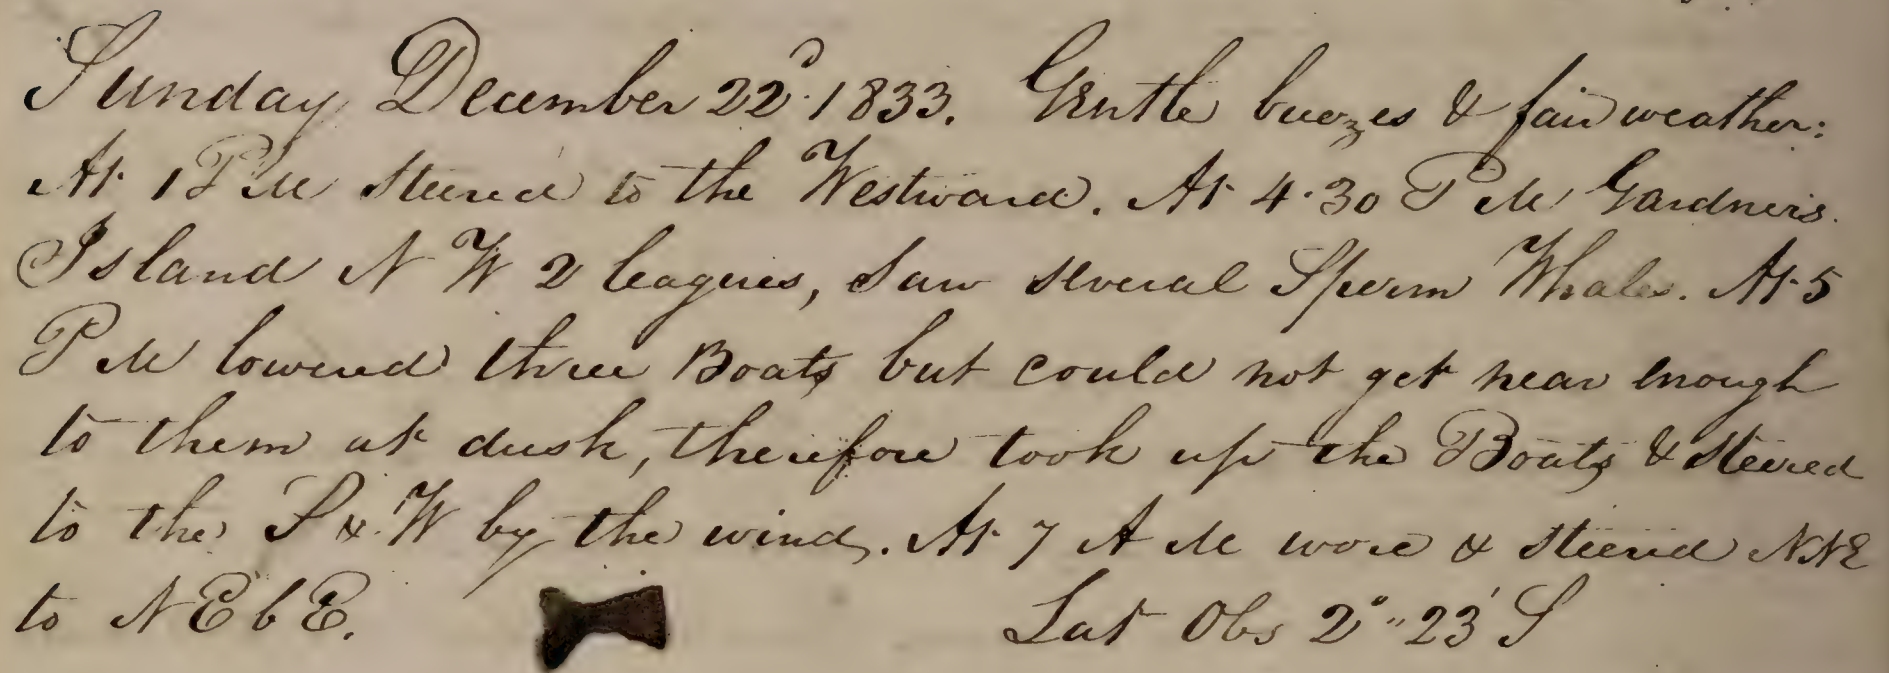 Sunday December 22d. 1833. Gentle breezes & fair weather:
At 1 PM steered to the Westward. At 4.30 PM Gardners
Island N W 2 leagues, saw several Sperm Whales. At 5
PM lowered three Boats but could not get near enough
to them at dusk, therefore took up the Boats & steered
to the S & W by the wind. At 7 A M wore & steered NNE
to N E b E. Lat Obs 2°" 23' S